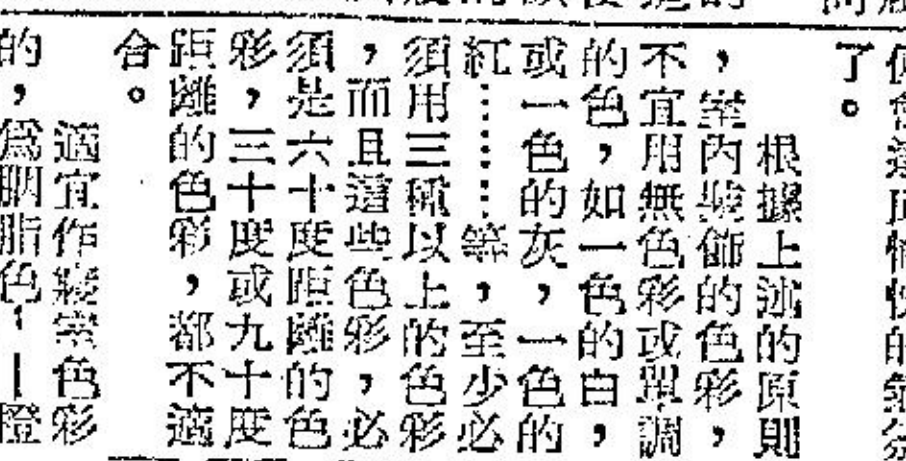 便會達
的
了。
根據上述的原則
，室內裝飾的色彩，
不宜用無色彩或單調
的色，如一色的白，
或一色的灰，一色的
紅……等，至少必
須用三種以上的色彩
，而且這些色彩，必
須是六十度距離的色
彩，三十度或九十度
距離的色彩，都不適
合。
適宜作寢室色彩
的，爲胭脂色，—橙